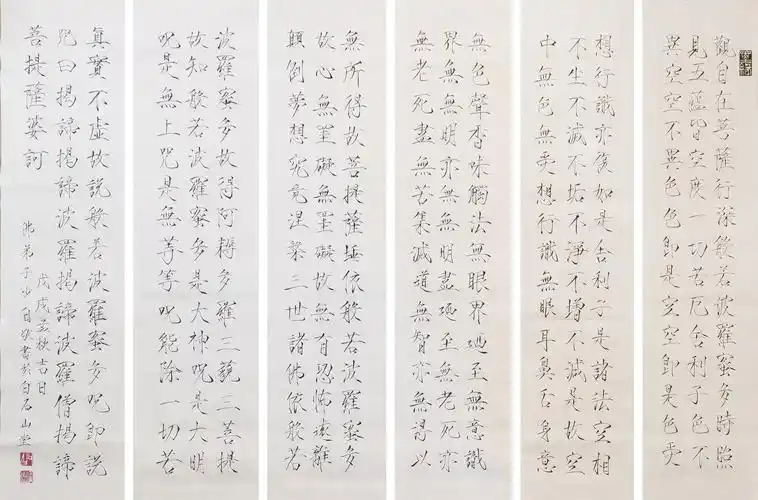 觀自在菩薩行深般若波羅蜜多時照
見五蘊皆空度一切苦厄舍利子色不
異空空不異色色即是空空即是色受
想行識亦復如是舍利子是諸法空相
不生不滅不垢不淨不增不減是故空
中無色無受想行識無眼耳鼻舌身意
無色聲香味觸法無眼界廼至無意識
界無無明亦無無明盡廼至無老死亦
無老死盡無苦集滅道無智亦無得以
無所得故菩提薩埵依般若波羅蜜多
故心無罣礙無罣礙故無有恐怖遠離
顛倒夢想究竟涅槃三世諸佛依般若
波羅蜜多故得阿耨多羅三藐三菩提
故知般若波羅蜜多是大神呪是大明
呪是無上呪是無等等呪能除一切苦
真實不虛故說般若波羅蜜多呪即說
呪曰揭諦揭諦波羅揭諦波羅僧揭諦
菩提薩婆訶
戊戌孟秋吉日
佛弟子少白敬書於白石山堂